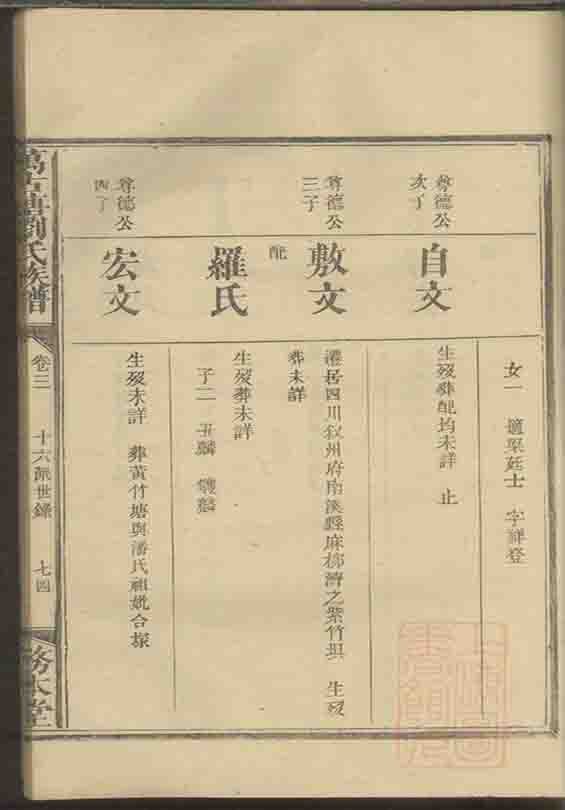 女一 適梁廷士 字祥登
尊德公
次子
自文
生歿葬配均未詳 止
尊德公
三子
敷文
遷居四川敘州府南溪縣麻柳灣之紫竹垻 生歿
葬未詳
配
羅氏
生歿葬未詳
子二 丑麟 儀麟
尊德公
四子
宏文
生歿未詳 葬黃竹塘與潘氏祖妣合塚
劉氏族譜
卷三
十六派世錄
七四
務本堂
上海圖
書館藏